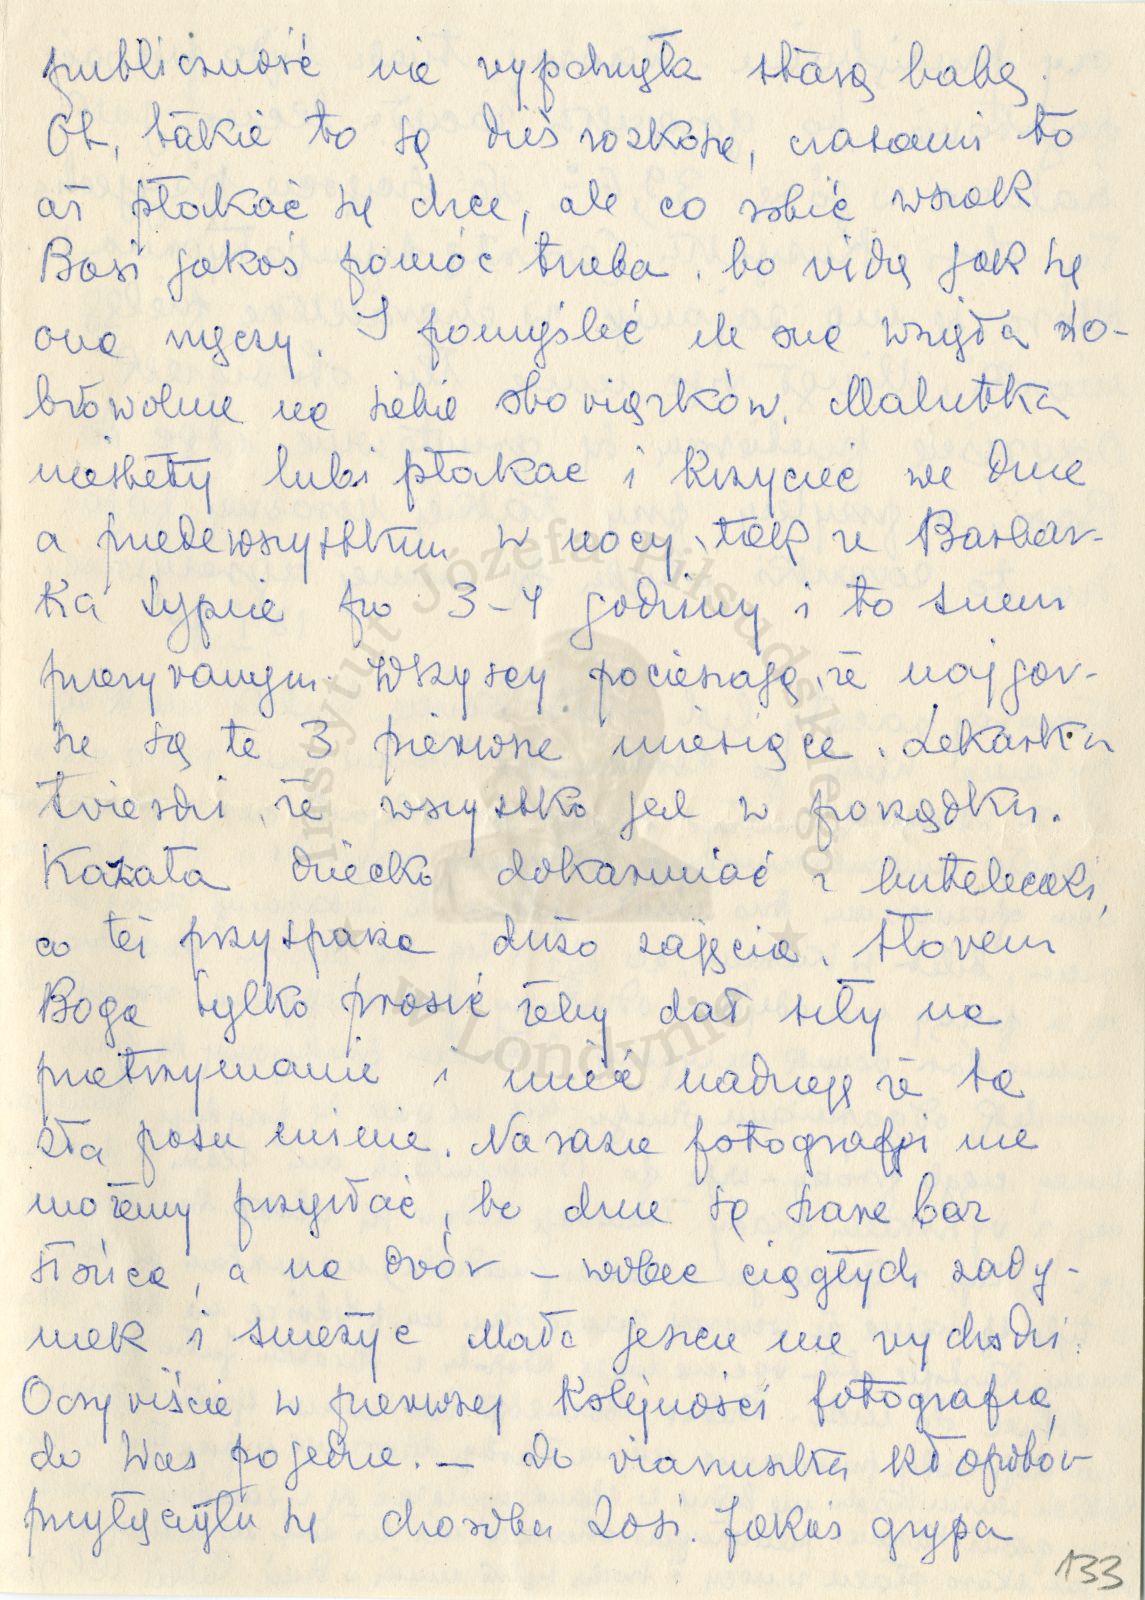 publiczność nie wypchnęła starą babę.
Ot, takie to są dziś rozkosze, czasami to
aż płakać się chce, ale co robić wszak
Basi jakoś pomóc trzeba, bo widzę jak się
ona męczy. I pomyśleć ile ona wzięła do-
browolnie na siebie obowiązków. Malutka
niestety lubi płakac i krzyczeć we dnie
a przedewszystkim w nocy, tak że Barbar-
ka sypie po 3-4 godziny i to snem
przerywanym. Wszyscy pocieszają, że najgor-
sze są te 3 pierwsze miesiące. Lekarka
twierdzi, że wszystko jest w porządku.
Kazała dziecko dokarmiać z buteleczki,
co też przysparza dużo zajęcia. Słowem
Boga tylko prosić żeby dał siły na
przetrzymanie i mieć nadzieję że ta
zła passa minie. Na razie fotografji nie
możemy przysłać, bo dnie są szare bez
słońca, a na dwór – wobec ciągłych zady-
mek i śnieżyc Mała jeszcze nie wychodzi.
Oczywiście w pierwszej kolejności fotografia
do Was pojedzie. – Do wianuszka kłopotów
przyłączyła się choroba Zosi. Jakaś grypa
133
Instytut Józefa Piłsudskiego
w Londynie